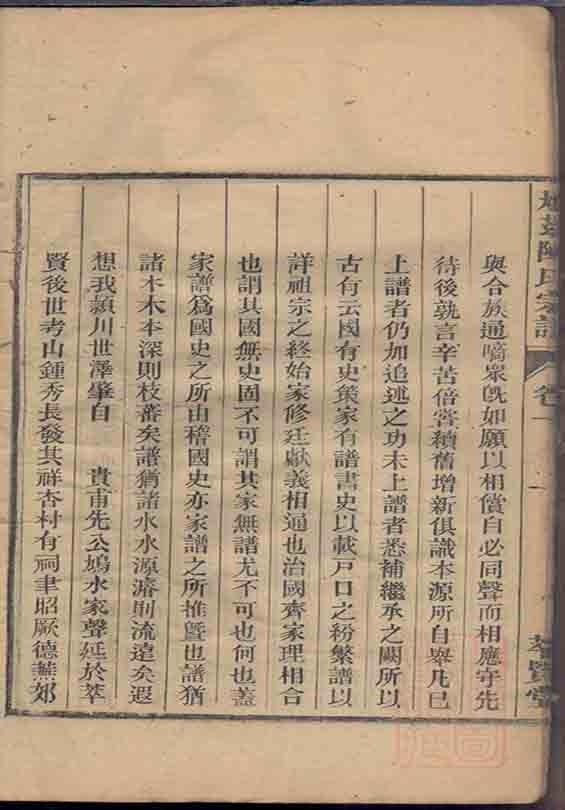 陳氏宗譜 卷一 萃賢堂
與合族通啇衆旣如願以相償自必同聲而相應守先
待後孰言辛苦倍嘗續舊增新俱識本源所自舉凡已
上譜者仍加追述之功未上譜者悉補繼承之闕所以
古有云國有史策家有譜書史以載戸口之紛繁譜以
詳祖宗之終始家修廷獻義相通也治國齊家理相合
也謂其國無史固不可謂其家無譜尤不可也何也蓋
家譜爲國史之所由稽國史亦家譜之所推曁也譜猶
諸木木本深則枝蕃矣譜猶諸水水源濬則流遠矣遐
想我潁川世澤肇自 貴甫先公鳩水家聲延於萃
賢後世考山鍾秀長發其祥杏村有祠聿昭厥德蕪郊